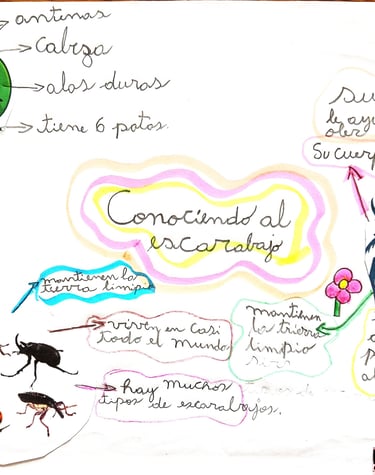 antenas
Cabeza
alas duras
tiene 6 patas.
Su
le ayu
oler
Su cuerp
Conociendo al
escarabajo
mantienen la
tierra limpia
viven en Casi
todo el mundo
mantienen
la trierra
limpia
hay muchos
tipos de escarabajos.